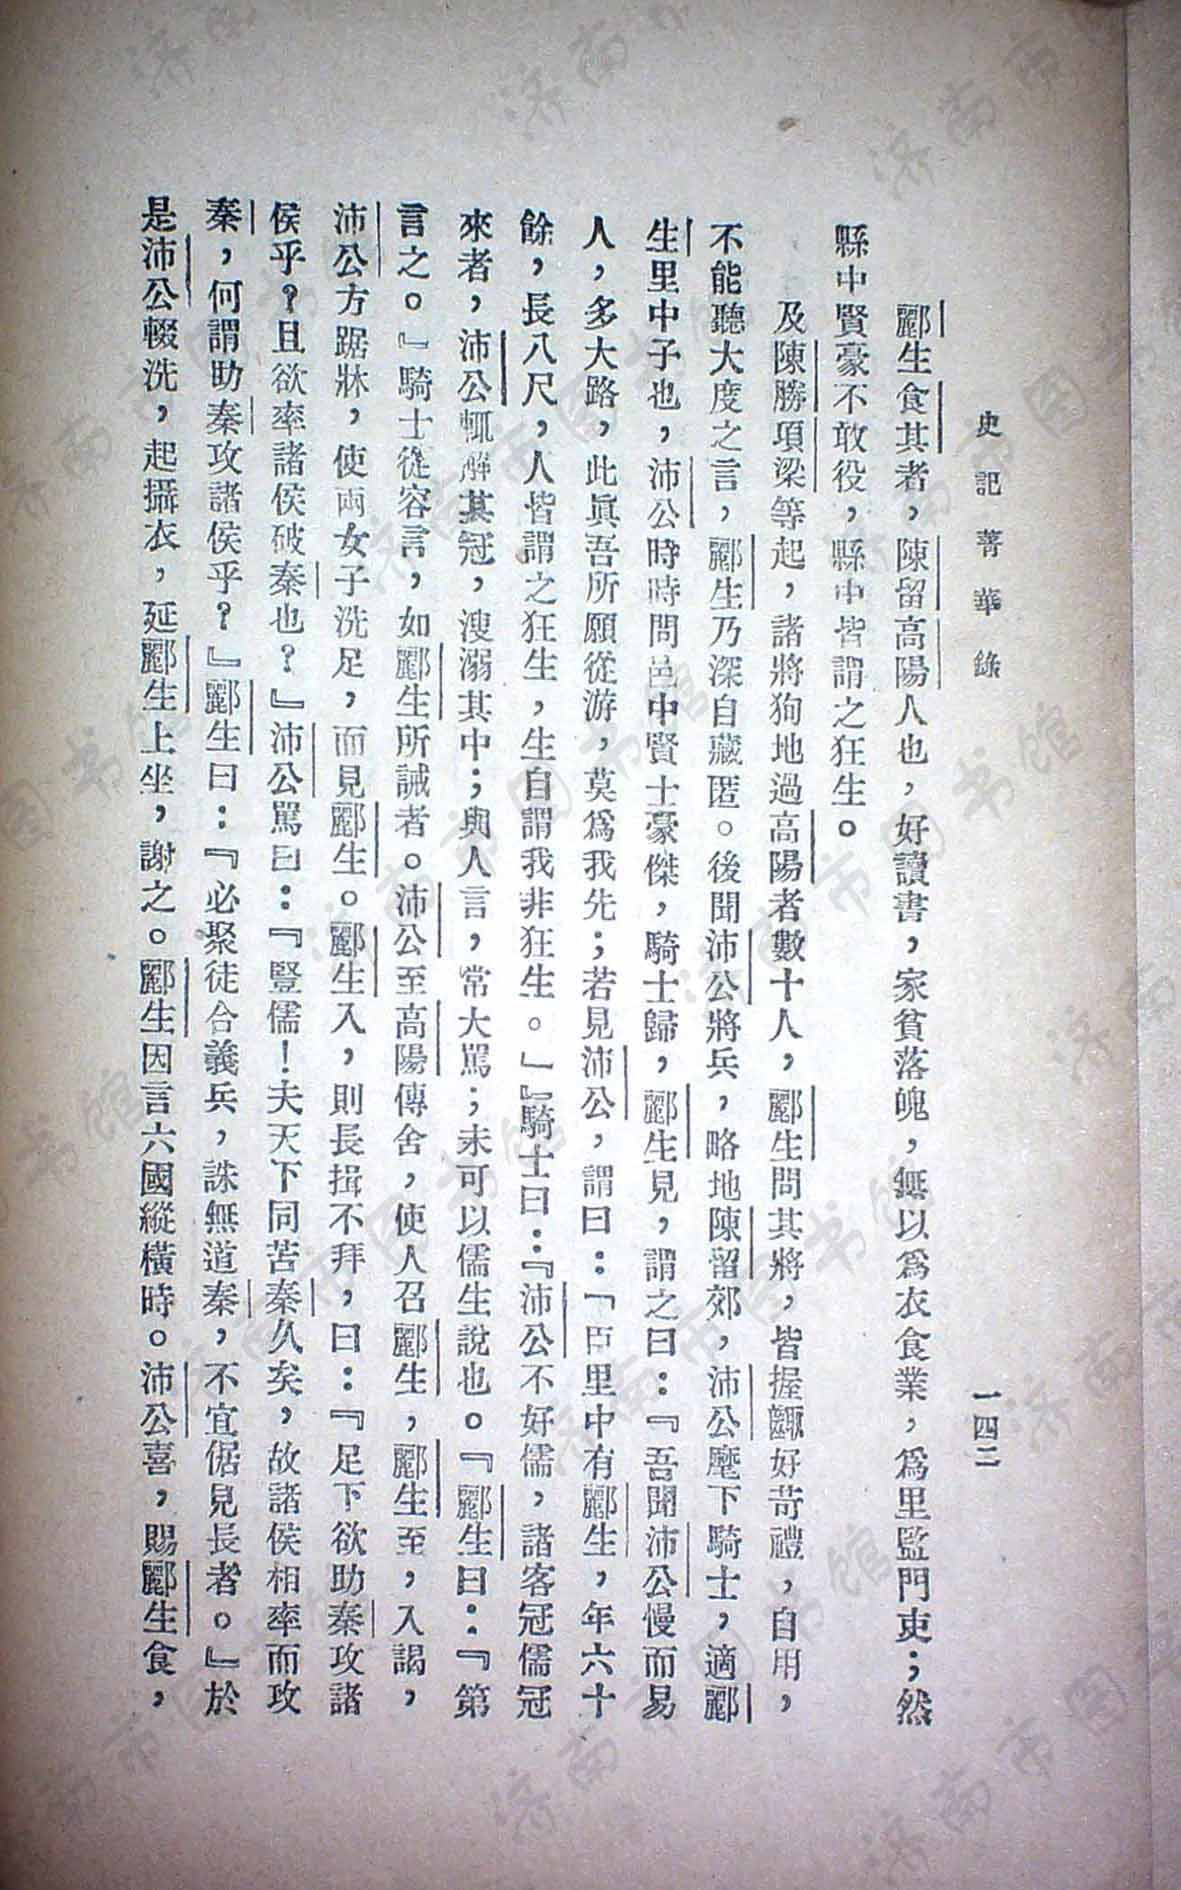 史記菁華錄
一四二
酈生食其者，陳留高陽人也，好讀書，家貧落魄，無以爲衣食業，爲里監門吏；然
縣中賢豪不敢役，縣中皆謂之狂生。
及陳勝項梁等起，諸將狥地過高陽者數十人，酈生問其將，皆握齱好苛禮，自用，
不能聽大度之言，酈生乃深自藏匿。後聞沛公將兵，略地陳留郊，沛公麾下騎士，適酈
生里中子也，沛公時時問邑中賢士豪傑，騎士歸，酈生見，謂之曰：『吾聞沛公慢而易
人，多大路，此眞吾所願從游，莫爲我先；若見沛公，謂曰：「臣里中有酈生，年六十
餘，長八尺，人皆謂之狂生，生自謂我非狂生。」』騎士曰：『沛公不好儒，諸客冠儒冠
來者，沛公輒解其冠，溲溺其中；與人言，常大駡；未可以儒生說也。『酈生曰：『第
言之。』騎士從容言，如酈生所誡者。沛公至高陽傳舍，使人召酈生，酈生至，入謁，
沛公方踞牀，使兩女子洗足，而見酈生。酈生入，則長揖不拜，曰：『足下欲助秦攻諸
侯乎？且欲率諸侯破秦也？』沛公駡曰：『豎儒！夫天下同苦秦久矣，故諸侯相率而攻
秦，何謂助秦攻諸侯乎？』酈生曰：『必聚徒合義兵，誅無道秦，不宜倨見長者。』於
是沛公輟洗，起攝衣，延酈生上坐，謝之。酈生因言六國縱橫時。沛公喜，賜酈生食，
济南市图书馆